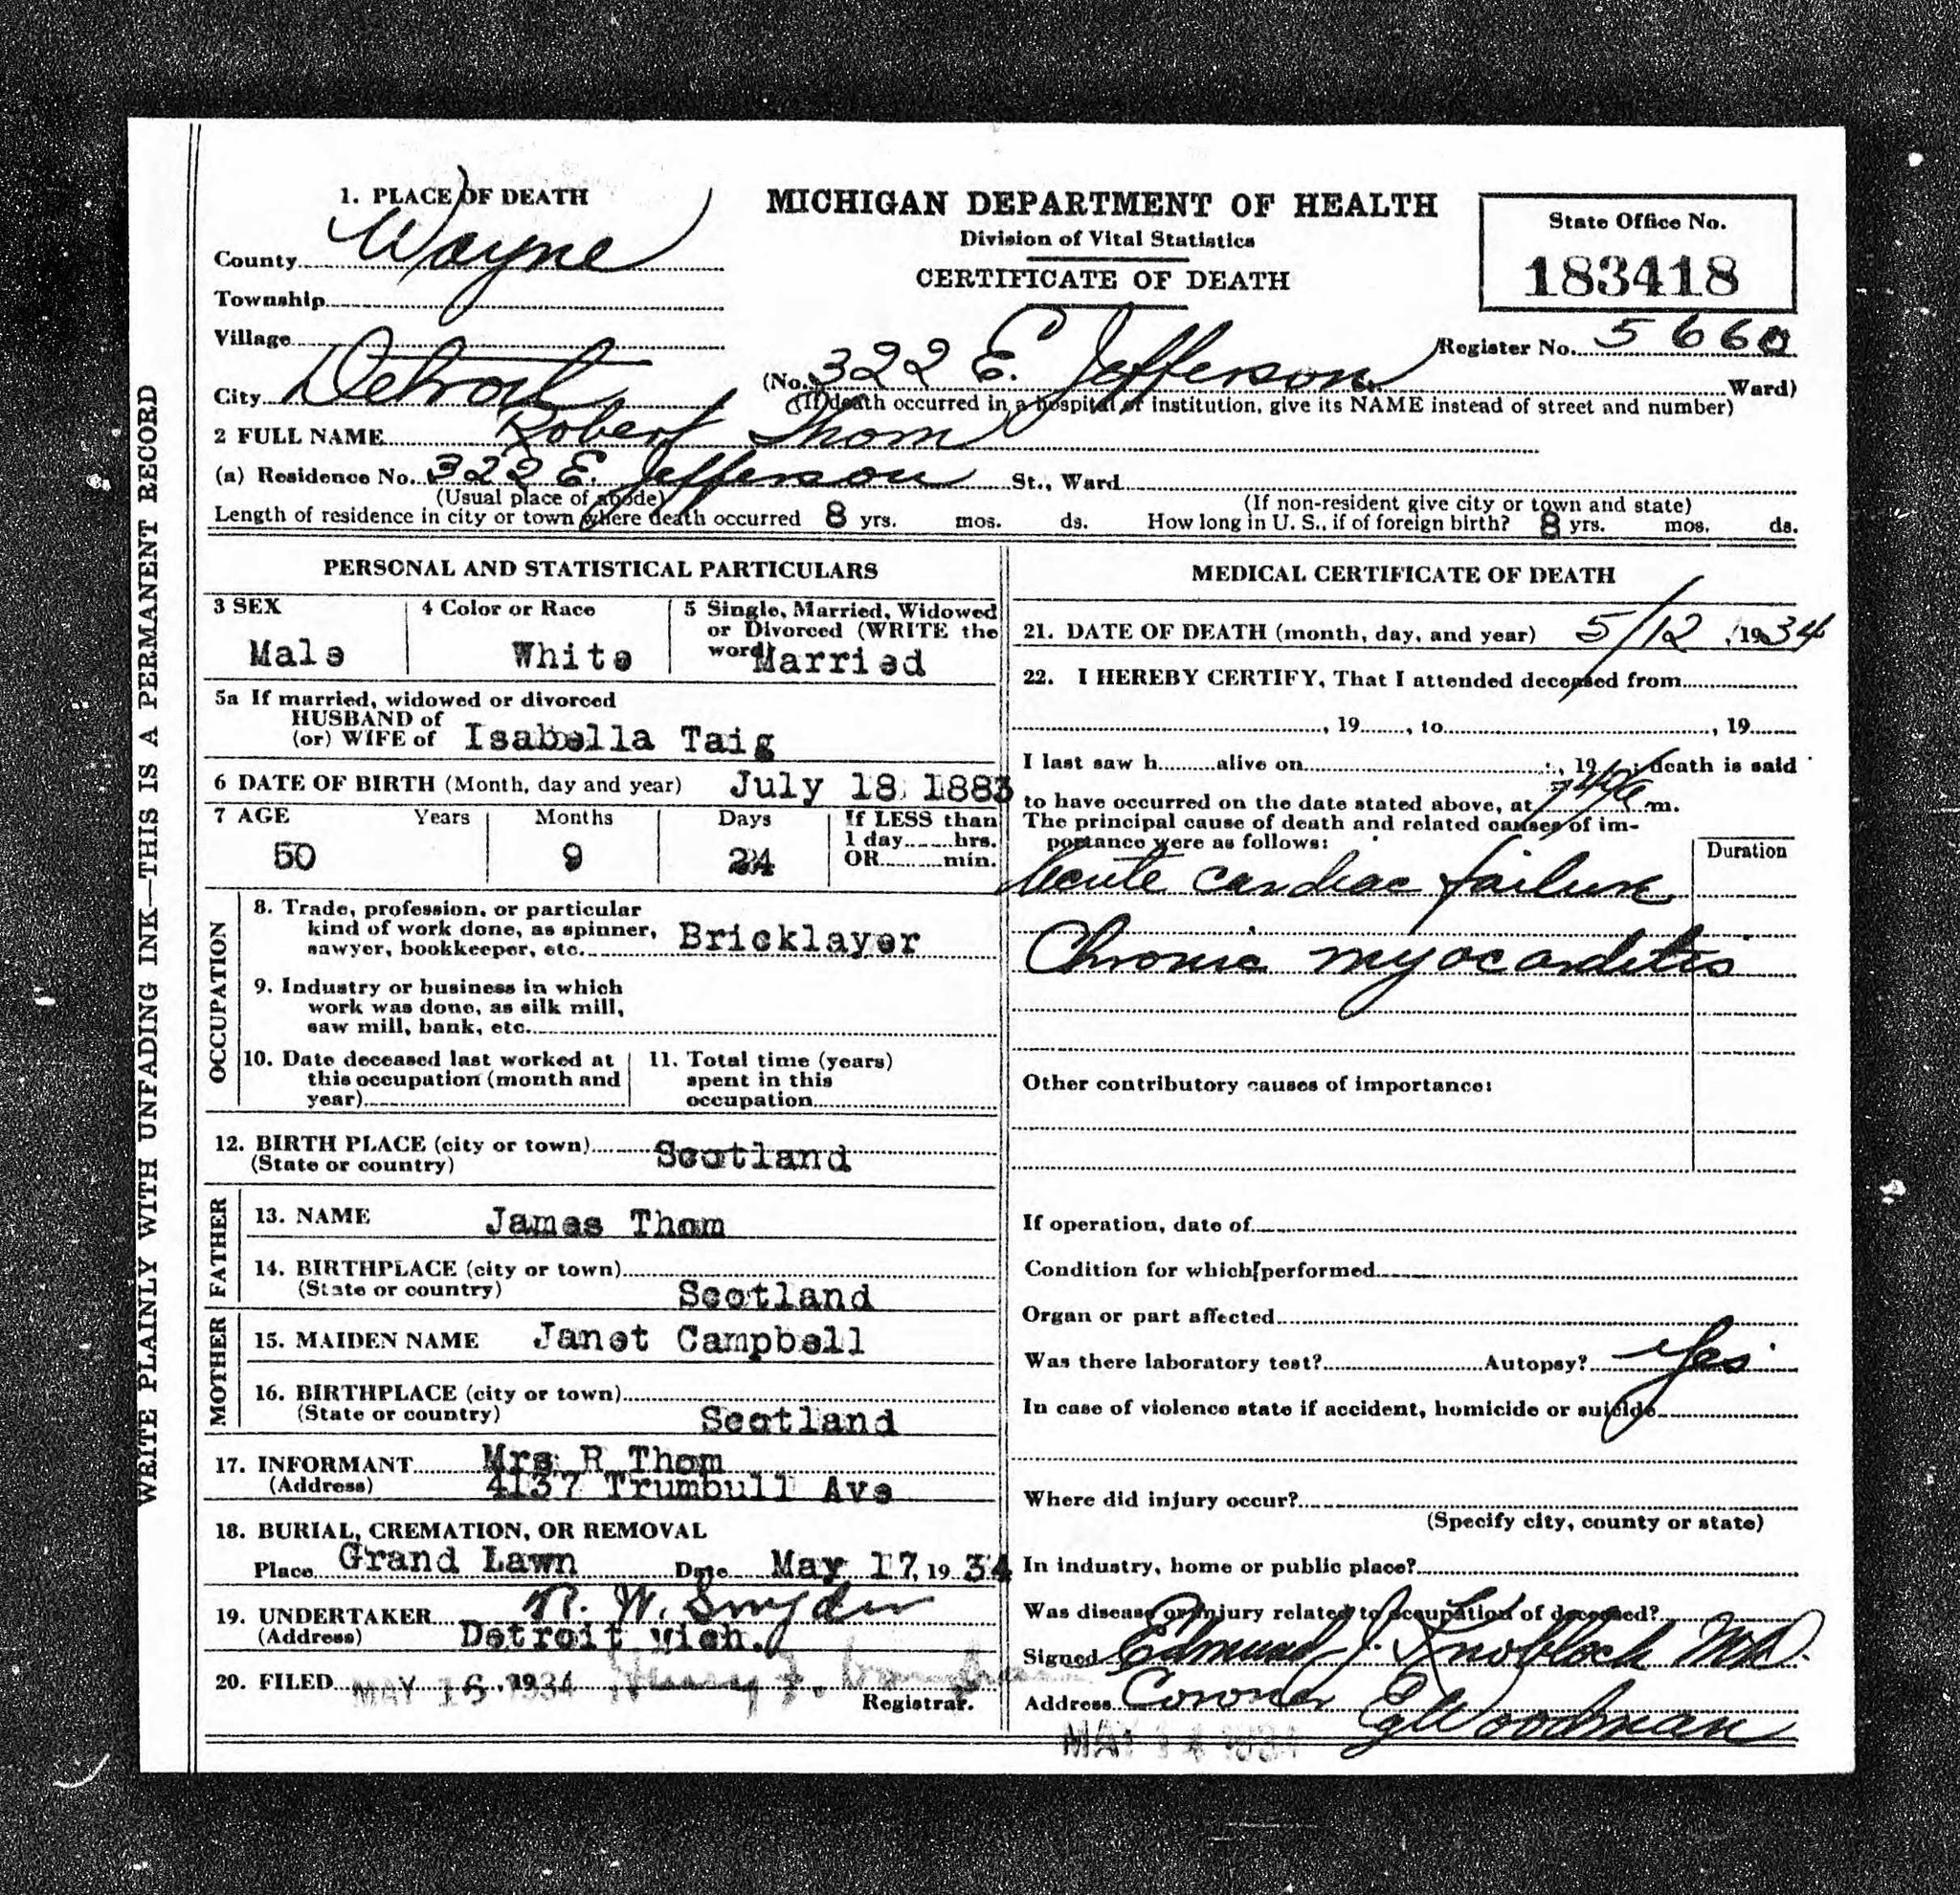 WRITE PLAINLY WITH UNFADING INK—THIS IS A PERMANENT RECORD
1. PLACE OF DEATH
County Wayne
Township
Village
City Detroit
MICHIGAN DEPARTMENT OF HEALTH
Division of Vital Statistics
CERTIFICATE OF DEATH
State Office No.
183418
Register No. 5660
(No. 322 E. Jefferson St. Ward)
(If death occurred in a hospital or institution, give its NAME instead of street and number)
2 FULL NAME Robert Thom
(a) Residence No. 322 E. Jefferson St., Ward
(Usual place of abode) (If non-resident give city or town and state)
Length of residence in city or town where death occurred 8 yrs. mos. ds. How long in U. S., if of foreign birth? 8 yrs. mos. ds.
PERSONAL AND STATISTICAL PARTICULARS
3 SEX
Male
4 Color or Race
White
5 Single, Married, Widowed
or Divorced (WRITE the
word)
Married
5a If married, widowed or divorced
HUSBAND of
(or) WIFE of Isabella Taig
6 DATE OF BIRTH (Month, day and year) July 18 1883
7 AGE Years Months Days If LESS than
1 day hrs.
OR min.
50 9 24
OCCUPATION
8. Trade, profession, or particular
kind of work done, as spinner,
sawyer, bookkeeper, etc. Bricklayer
9. Industry or business in which
work was done, as silk mill,
saw mill, bank, etc.
10. Date deceased last worked at
this occupation (month and
year)
11. Total time (years)
spent in this
occupation
12. BIRTH PLACE (city or town) Scotland
(State or country)
FATHER
13. NAME James Thom
14. BIRTHPLACE (city or town)
(State or country) Scotland
MOTHER
15. MAIDEN NAME Janet Campbell
16. BIRTHPLACE (city or town)
(State or country) Scotland
17. INFORMANT Mrs R Thom
(Address) 4137 Trumbull Ave
18. BURIAL, CREMATION, OR REMOVAL
Place Grand Lawn Date May 17, 1934
19. UNDERTAKER R. W. Snyder
(Address) Detroit Mich.
20. FILED MAY 16 1934, 19
Registrar.
MEDICAL CERTIFICATE OF DEATH
21. DATE OF DEATH (month, day, and year) 5/12, 1934
22. I HEREBY CERTIFY, That I attended deceased from
, 19 , to , 19
I last saw h alive on , 19 ; death is said
to have occurred on the date stated above, at m.
The principal cause of death and related causes of im-
portance were as follows:
Duration
Acute cardiac failure
Chronic myocarditis
Other contributory causes of importance:
If operation, date of
Condition for which performed
Organ or part affected
Was there laboratory test? Autopsy? Yes
In case of violence state if accident, homicide or suicide
Where did injury occur?
(Specify city, county or state)
In industry, home or public place?
Was disease or injury related to occupation of deceased?
Signed Edmund J. Knobloch MD.
Address Coroner
Woodman
MAY 14 1934